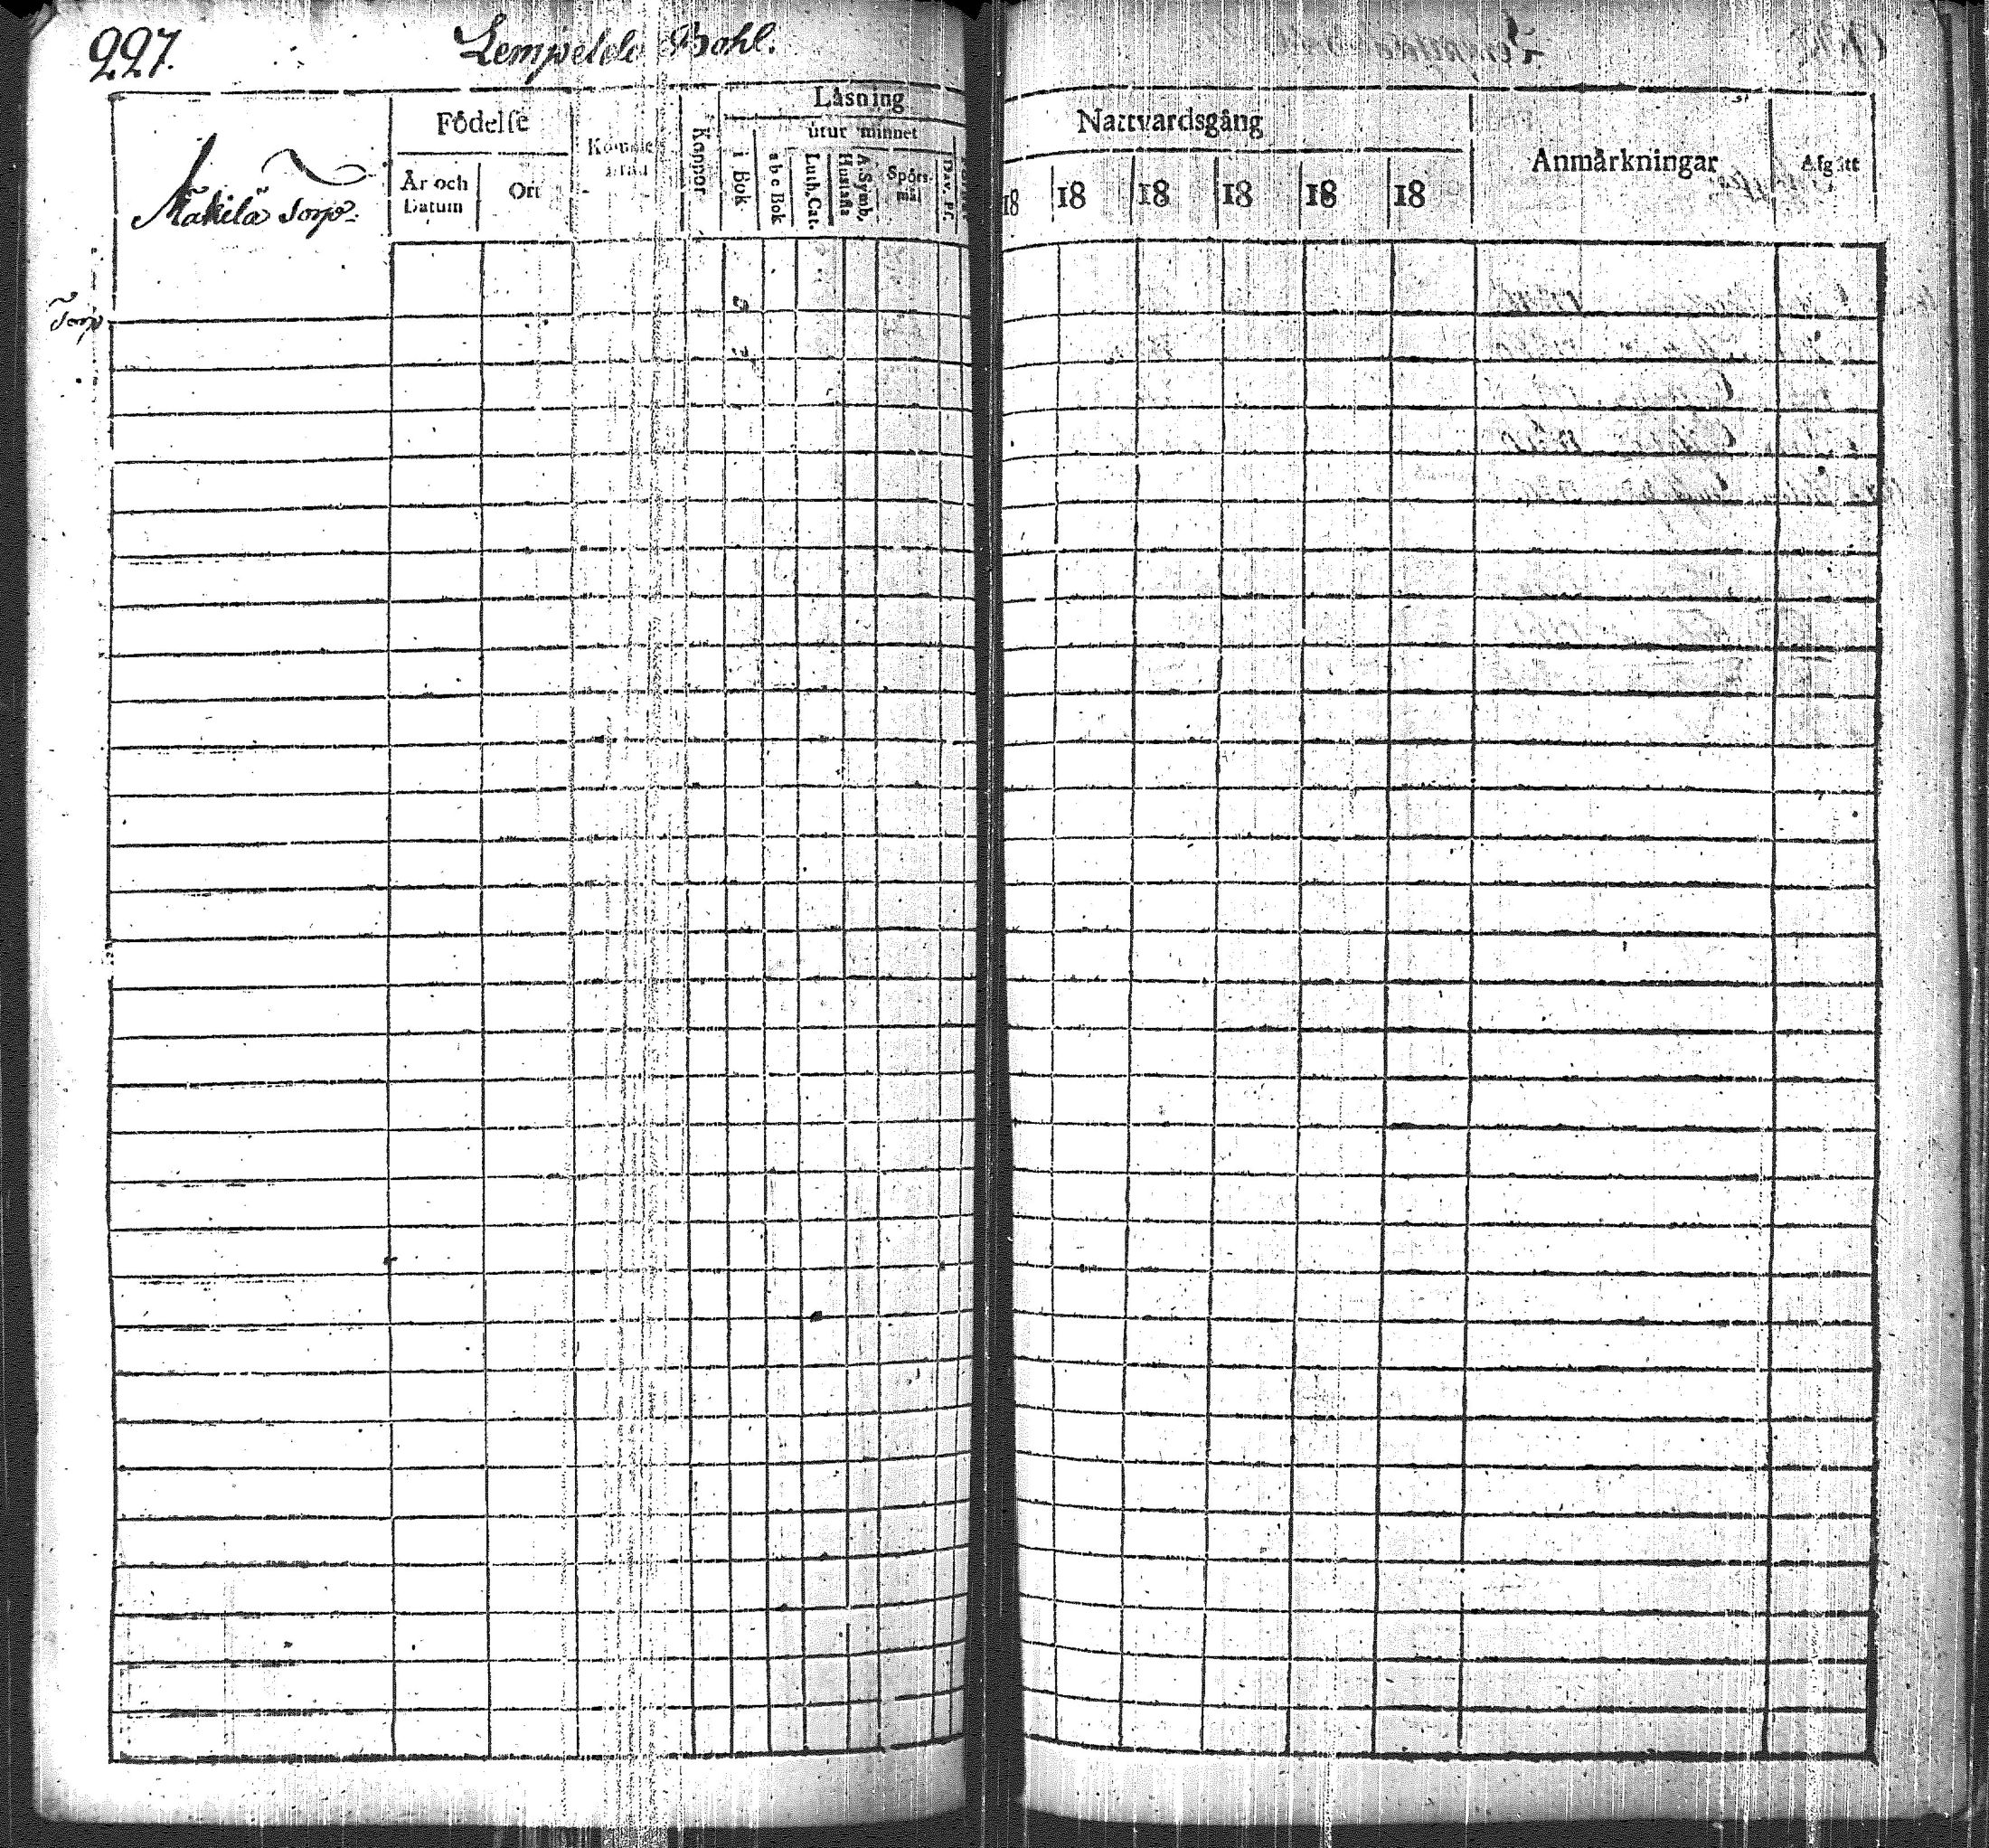 227. Lempelelä Bohl.
Mäkilä Torp.
Födelse
År och Datum
Ort
Koppor
Läsning
utur minnet
i Bok
a b c Bok
Luth. Cat.
A. Symb. Hustafla
Spörs-mål
Dav. Ps.
Nattvardsgång
18 18 18 18 18 18
Anmärkningar
Afgått
Torp